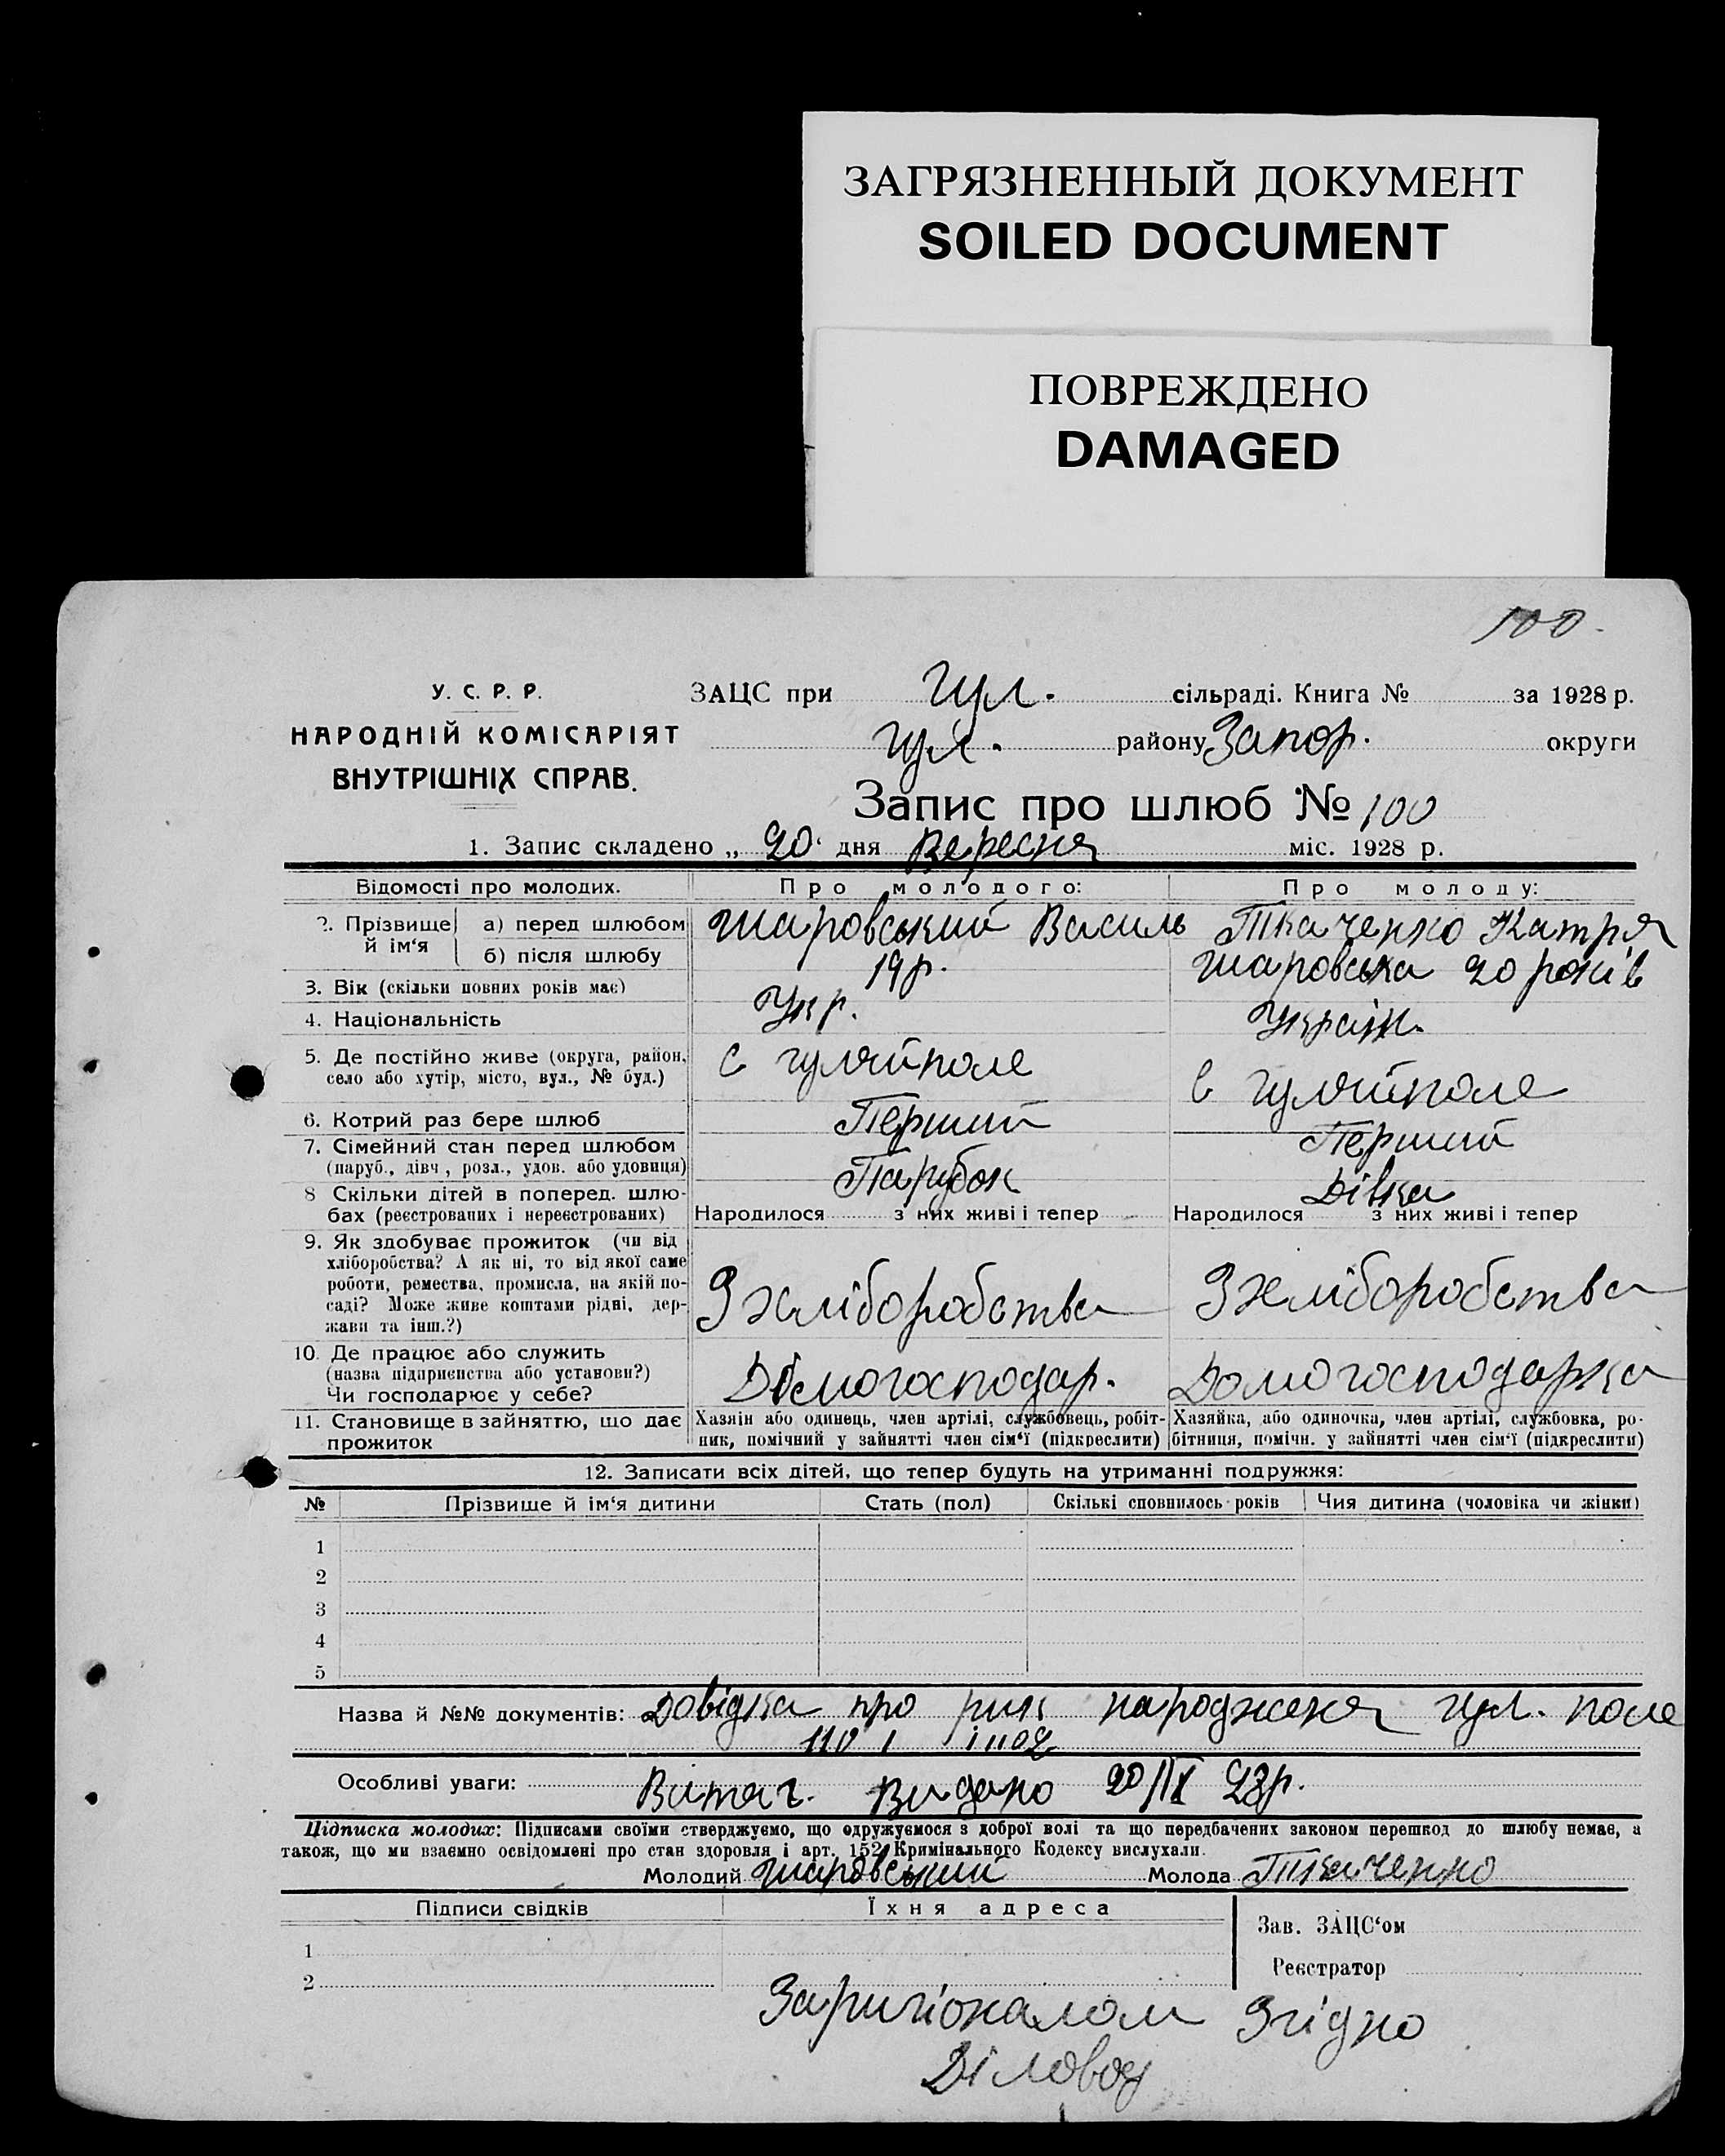 ЗАГРЯЗНЕННЫЙ ДОКУМЕНТ
SOILED DOCUMENT
ПОВРЕЖДЕНО
DAMAGED
100.
У. С. Р. Р.
НАРОДНІЙ КОМІСАРІЯТ
ВНУТРІШНІХ СПРАВ.
ЗАЦС при Гул. сільраді. Книга № за 1928 р.
Гул. району Запор. округи
Запис про шлюб № 100
1. Запис складено „ 20 “ дня Вересня міс. 1928 р.
Відомості про молодих. Про молодого: Про молоду:
2. Прізвище й ім‘я а) перед шлюбом Шаровський Василь Ткаченко Катря
б) після шлюбу Шаровська 20 років
3. Вік (скільки повних років має) 19 р.
4. Національність Укр. Україн.
5. Де постійно живе (округа, район, село або хутір, місто, вул., № буд.) с Гуляйполе с Гуляйполе
6. Котрий раз бере шлюб Перший Перший
7. Сімейний стан перед шлюбом (паруб., дівч., розл., удов. або удовиця) Парубок Дівка
8 Скільки дітей в поперед. шлюбах (реєстрованих і нереєстрованих) Народилося з них живі і тепер Народилося з них живі і тепер
9. Як здобуває прожиток (чи від хліборобства? А як ні, то від якої саме роботи, ремества, промисла, на якій посаді? Може живе коштами рідні, держави та інш.?) З хліборобства З хліборобства
10. Де працює або служить (назва підприєнства або установи?) Чи господарює у себе? Домогосподар. Домогосподарка
11. Становище в зайняттю, що дає прожиток Хазяін або одинець, член артілі, службовець, робітник, помічний у зайнятті член сім‘ї (підкреслити) Хазяйка, або одиночка, член артілі, службовка, робітниця, помічн. у зайнятті член сім‘ї (підкреслити)
12. Записати всіх дітей, що тепер будуть на утриманні подружжя:
№ Прізвише й ім‘я дитини Стать (пол) Скількі сповнилось років Чия дитина (чоловіка чи жінки)
1
2
3
4
5
Назва й №№ документів: Довідка про рик народженя Гул. поле
Особливі уваги: Витяг. Видано 20/IX 28р.
Підписка молодих: Підписами своїми стверджуємо, що одружуємося з доброї волі та що передбачених законом перешкод до шлюбу немає, а
також, що ми взаємно освідомлені про стан здоровля і арт. 152 Кримінального Кодексу вислухали.
Молодий Шаровський Молода Ткаченко
Підписи свідків Їхня адреса
Зав. ЗАЦС‘ом
1
Реєстратор
2
Заригіоналом Згідно
Діловод